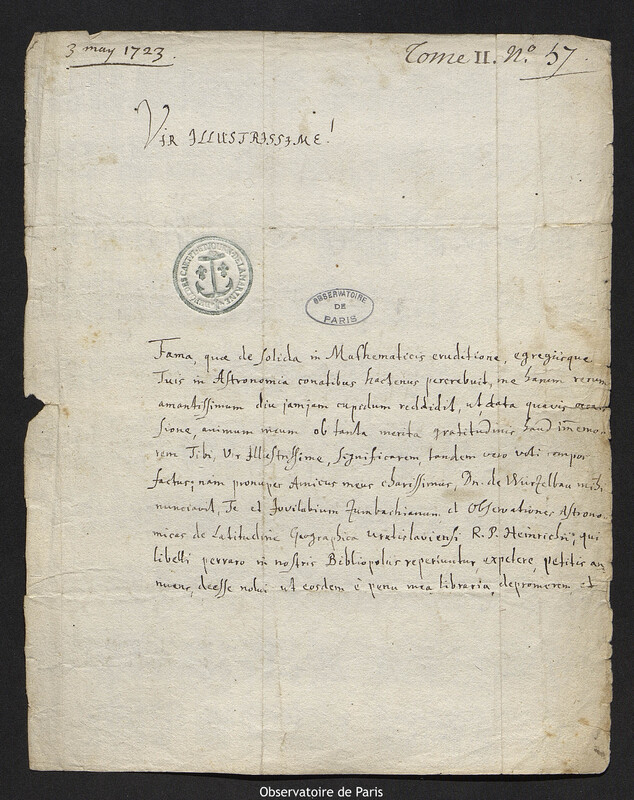 3 may 1723.
Tome II. No. 57
VIR ILLUSTRISSIME!
OBSERVATOIRE
DE
PARIS
Fama, quæ de solida in Mathematicis eruditione, egregiisque
Tuis in Astronomia conatibus hactenus percrebuit, me harum rerum
amantissimum diu jamjam cupidum reddidit, ut, data quavis occa
sione, animum meum ob tanta merita gratitudinis haud immemo
rem Tibi, Vir Illustrissime, significarem, tandem vero voti compos
factus; nam pronuper Amicus meus charissimus, Dn. de Wurzelbau mihi
nunciavit, Te et Jovilabium Zumbachianum et Observationes Astrono
micas de Latitudine Geographica Uratislaviensi R. P. Heinrichii, qui
libelli perraro in nostris Bibliopoliis reperiuntur expetere, petitis an
nuens, deesse nolui ut eosdem è penu mea libraria depromerem et
Observatoire de Paris